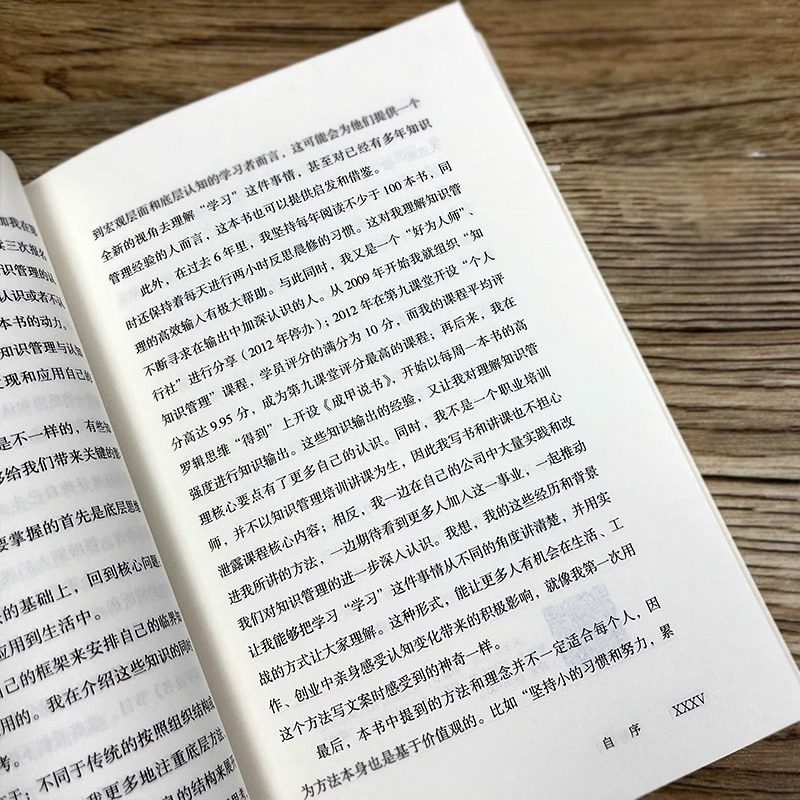 三次报名
识管理的认
认识或者不认
本书的动力。
知识管理与认知
发现和应用自己的
是不一样的，有些
够给我们带来关键的影
要掌握的首先是底层思维
的基础上，回到核心问题
应用到生活中。
己的框架来安排自己的临界知
用的。我在介绍这些知识的同时
考。
于：不同于传统的按照组织结构
我更多地注重底层方法
的结构来展
到宏观层面和底层认知的学习者而言，这可能会为他们提供一个
全新的视角去理解“学习”这件事情，甚至对已经有多年知识
管理经验的人而言，这本书也可以提供启发和借鉴。
此外，在过去6年里，我坚持每年阅读不少于100本书，同
时还保持着每天进行两小时反思晨修的习惯。这对我理解知识管
理的高效输入有极大帮助。与此同时，我又是一个“好为人师”、
不断寻求在输出中加深认识的人。从2009年开始我就组织“知
行社”进行分享（2012年停办）；2012年在第九课堂开设“个人
知识管理”课程，学员评分的满分为10分，而我的课程平均评
分高达9.95分，成为第九课堂评分最高的课程；再后来，我在
罗辑思维“得到”上开设《成甲说书》，开始以每周一本书的高
强度进行知识输出。这些知识输出的经验，又让我对理解知识管
理核心要点有了更多自己的认识。同时，我不是一个职业培训
师，并不以知识管理培训讲课为生，因此我写书和讲课也不担心
泄露课程核心内容；相反，我一边在自己的公司中大量实践和改
进我所讲的方法，一边期待看到更多人加入这一事业，一起推动
我们对知识管理的进一步深入认识。我想，我的这些经历和背景
让我能够把学习“学习”这件事情从不同的角度讲清楚，并用实
战的方式让大家理解。这种形式，能让更多人有机会在生活、工
作、创业中亲身感受认知变化带来的积极影响，就像我第一次用
这个方法写文案时感受到的神奇一样。
最后，本书中提到的方法和理念并不一定适合每个人，因
为方法本身也是基于价值观的。比如“坚持小的习惯和努力，累
自 序 XXXV